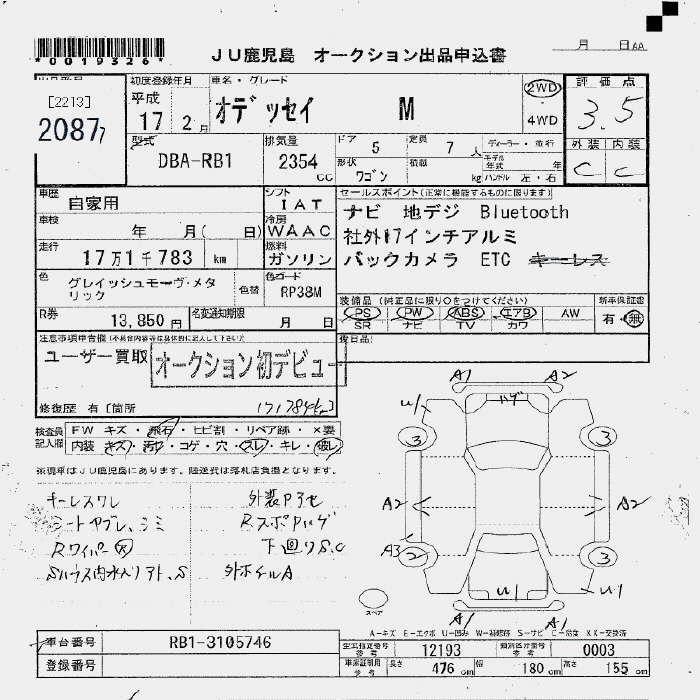 *0019326*
JU鹿児島 オークション出品申込書
月 日AA
[2213]
2087
初度登録年月
平成
17 2月
車名・グレード
オデッセイ M
2WD
4WD
評価点
3.5
型式
DBA-RB1
排気量
2354 cc
ドア 5
定員 7人
ディーラー・並行
形状
ワゴン
積載 kg
モデル年式 年
ハンドル 左・右
外装 内装
C C
車歴
自家用
シフト
IAT
セールスポイント(正常に機能するものに限ります)
車検 年 月( 日)
冷房
WAAC
ナビ 地デジ Bluetooth
社外17インチアルミ
バックカメラ ETC キーレス
走行
17万1千783 km
燃料
ガソリン
色
グレイッシュモーヴ・メタリック
色替
色コード
RP38M
装備品(純正品に限り○をつけてください)
新車保証書
PS PW ABS エアB AW
SR ナビ TV カワ
有・無
R券
13,850円
名変通知期限
月 日
注意事項申告欄(不具合内容等は具体的に記入して下さい)
後日品
ユーザー買取
オークション初デビュー
修復歴 有[箇所
171784km]
検査員記入欄
FW キズ・飛石・ヒビ割・リペア跡・×要
内装 キズ・汚れ・コゲ・穴・スレ・キレ・破レ
※現車はJU鹿児島にあります。陸送費は落札店負担となります。
キーレスワレ
シートヤブレ、シミ
Rワイパー欠
外装Pヨセ
RスポPハゲ
下回りS.C
外ホイルA
A1 A2
ハゲ
U1
3 3
A2 A2
A3 2 3
U1 U1
A1 A1
スペア
A-キズ E-エクボ U-凹み W-補修跡 S-サビ C-腐食 XX-交換済
車台番号 RB1-3105746
登録番号
型式指定番号 参考 12193
類別区分番号 参考 0003
車庫証明用 参考 長さ 476cm 幅 180cm 高さ 155cm